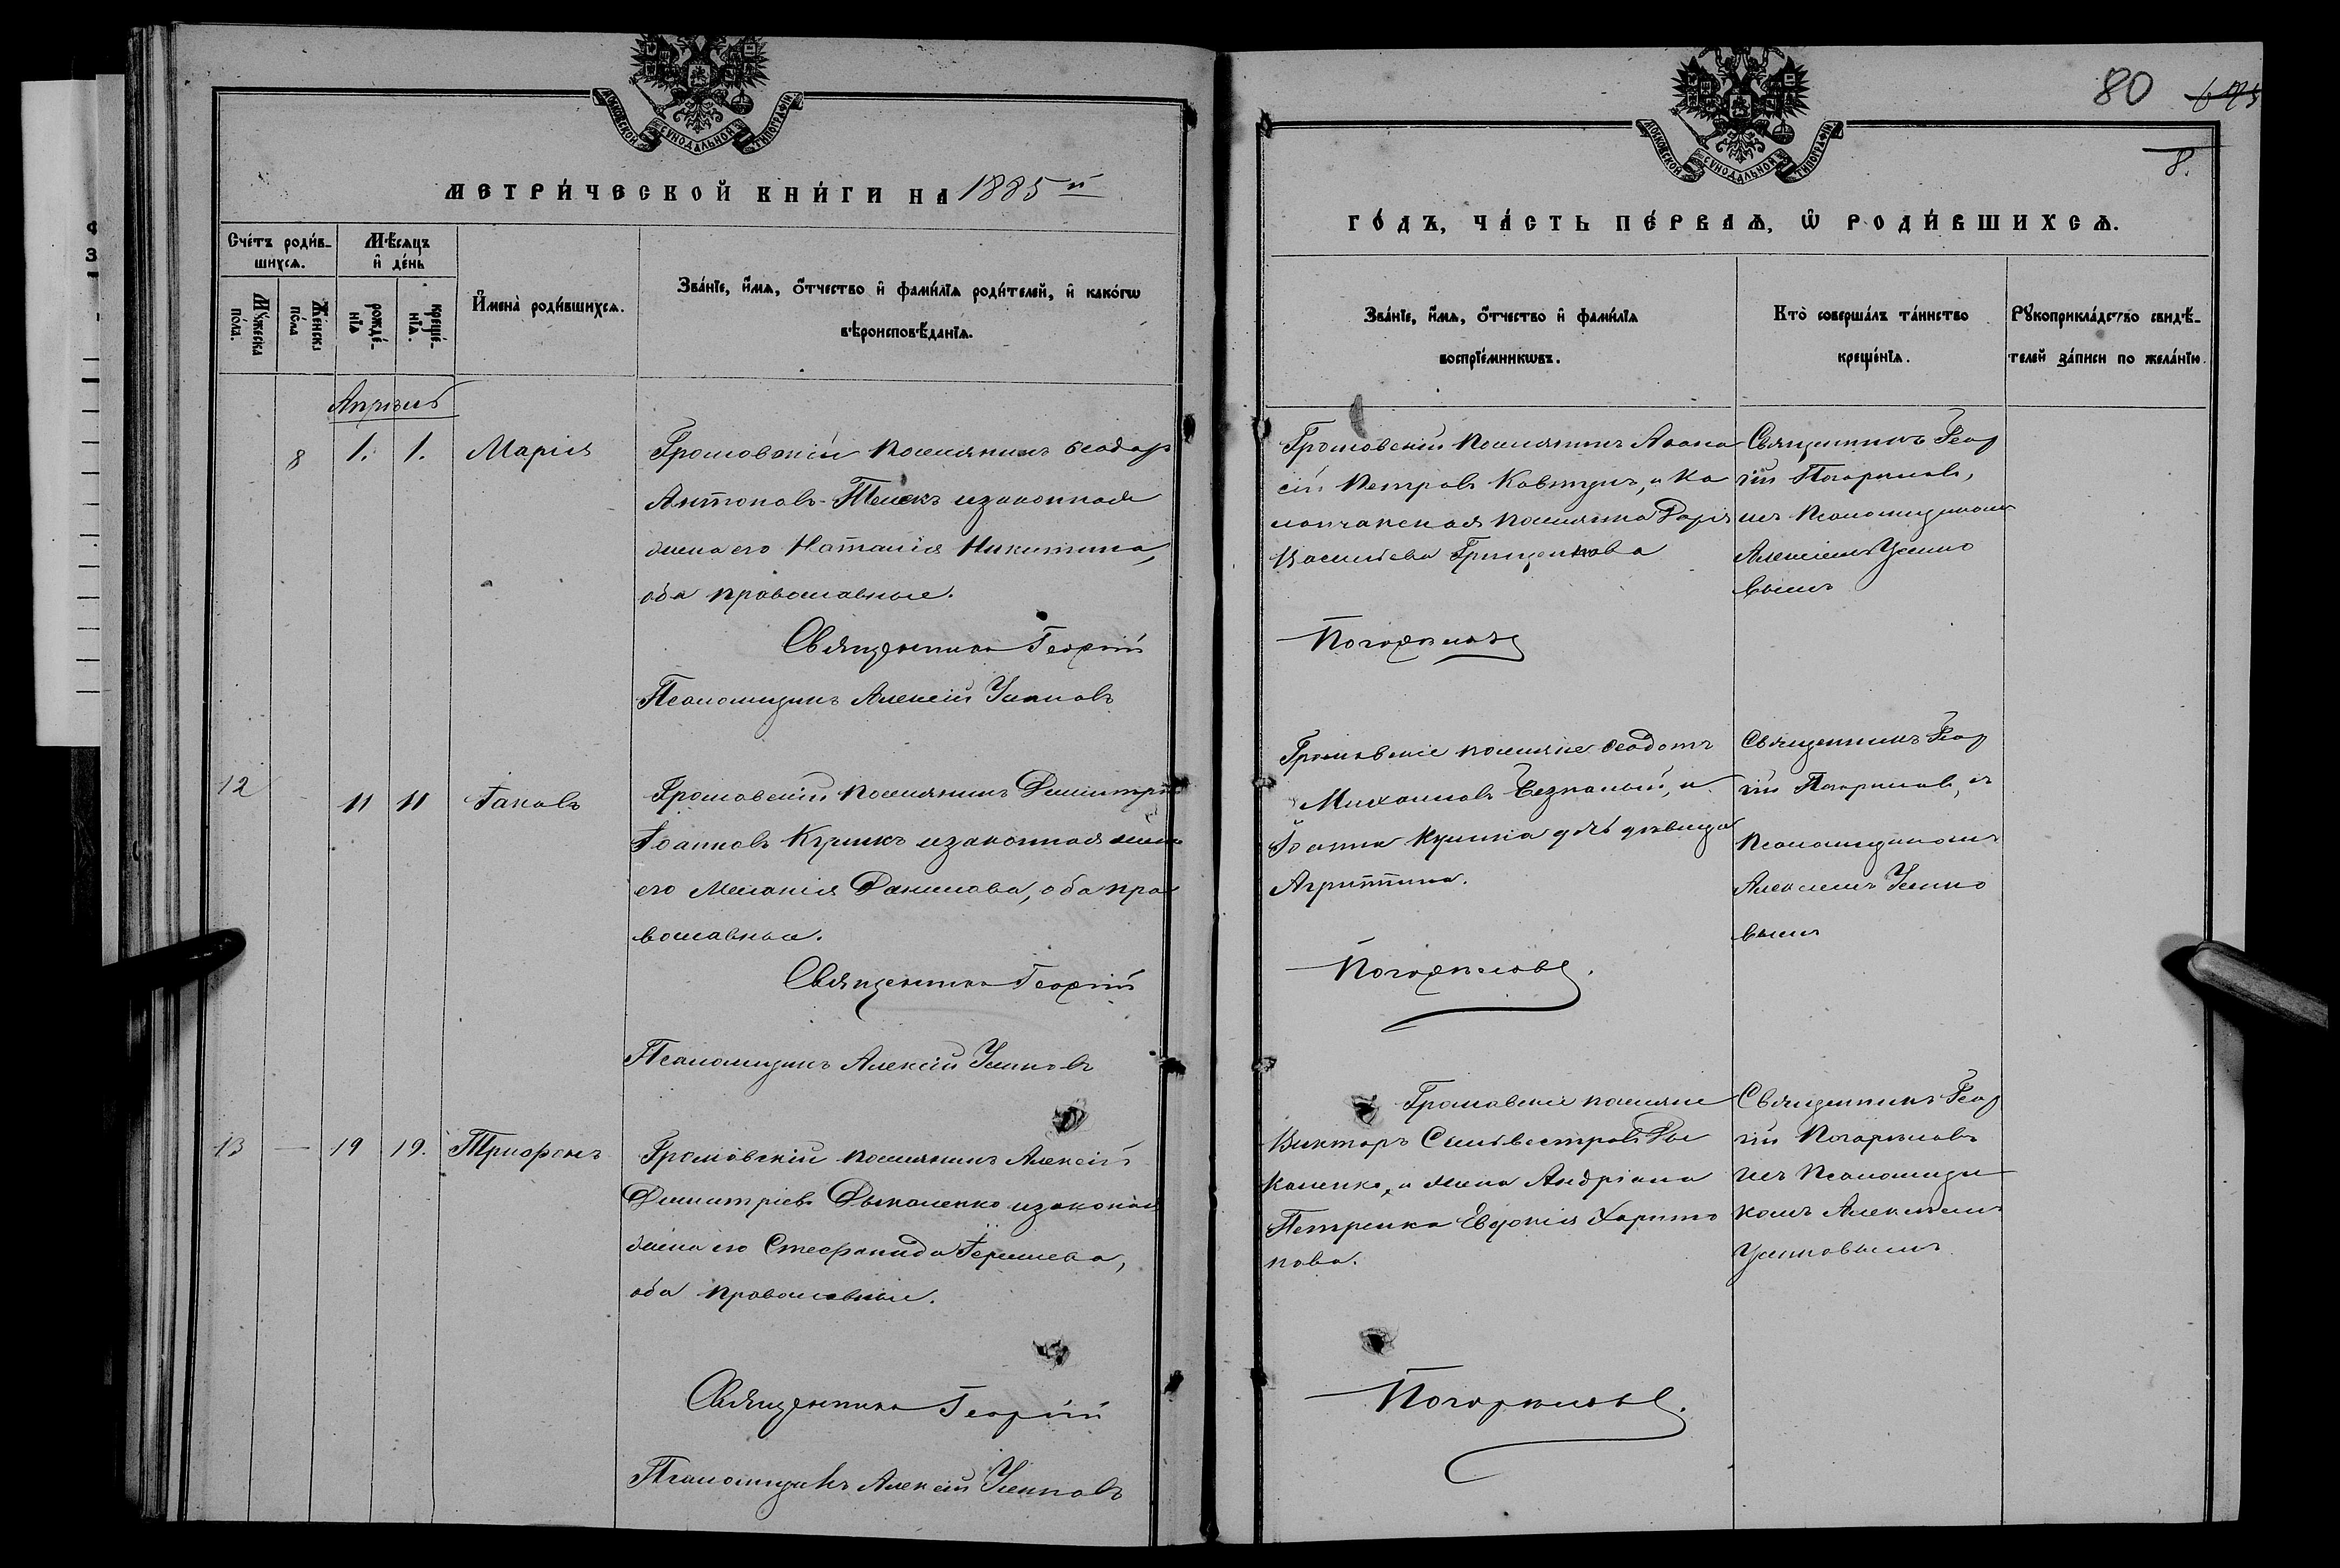 МОСКОВСКОЙ СУНОДАЛЬНОЙ ТИПОГРАФІИ
МЕТРИ́ЧЕСКОЙ КНИ́ГИ НА 1885 й
Сче́тъ роди́в-
шихсѧ.
Мѣ́сѧцъ
и҆ де́нь
Мꙋ́жеска
по́ла.
Же́нска
по́ла
рожде́-
нїѧ
креще́-
нїѧ.
И҆мена̀ роди́вшихсѧ.
Зва́нїе, и҆́мѧ, ѻ҆́тчество и҆ фами́лїѧ роди́телей, и҆ како́гѡ
вѣроисповѣ́данїѧ.
Апрѣль
8 1. 1. Марія
Громовскій поселянинъ Ѳеодоръ
Антоновъ Телекъ и законная
жена его Наталія Никитина,
оба православные.
Священникъ Георгій
Псаломщикъ Алексій Успновъ
12 11 11 Іаковъ
Громовскій поселянинъ Димитрій
Іоанновъ Куликъ и законная жена
его Меланія Данилова, оба пра
вославные.
Священникъ Георгій
Псаломщикъ Алексій Успновъ
13 — 19 19. Трифонъ
Громовскій поселянинъ Алексій
Димитріевъ Дыкаленко и законая
жена его Стефанида
оба православные.
Священникъ Георгій
Псаломщикъ Алексій Успновъ
80 675
8.
МОСКОВСКОЙ СУНОДАЛЬНОЙ ТИПОГРАФІИ
ГО́ДЪ, ЧА́СТЬ ПЕ́РВАѦ, Ѡ҆ РОДИ́ВШИХСѦ.
Зва́нїе, и҆́мѧ, ѻ҆́тчество и҆ фами́лїѧ
воспрїе́мникѡвъ.
Кто̀ соверша́лъ та́инство
креще́нїѧ.
Рꙋкоприкла́дство свидѣ́-
телей за́писи по жела́нїю.
Громовскій поселянинъ Аѳана
сій Петровъ Ковтунъ, и Ка
ланчакская поселянка Дарія
Васильева Грищенкова
Погорѣловъ
Священникъ Геор
гій Погорѣловъ,
съ Псаломщикомъ
Алексіемъ Успно
вымъ
Громовскіе поселяне Ѳеодотъ
Михаиловъ Безналый, и
Іоанна Кулика дочь дѣвица
Агриппина.
Погорѣловъ.
Священникъ Геор
гій Погорѣловъ, съ
Псаломщикомъ
Алексіемъ Успно
вымъ
Громовскіе поселяне
Викторъ Сильвестровъ Ды
каленко, и жена Андріана
Петренка Евдокія Харито
нова.
Погорѣловъ.
Священникъ Геор
гій Погорѣловъ
съ Псаломщи
комъ Алексіемъ
Успновымъ